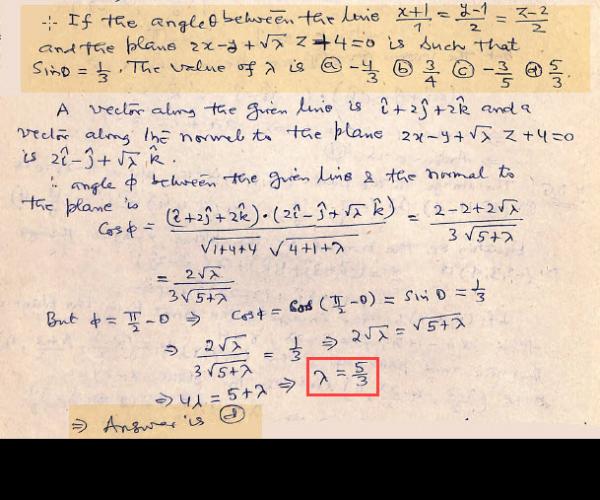 ∴ If the angle θ between the line (x+1)/1 = (y-1)/2 = (z-2)/2
and the plane 2x-y+√λ z+4=0 is such that
Sinθ = 1/3. The value of λ is (a) -4/3 (b) 3/4 (c) -3/5 (d) 5/3.
A vector along the given line is î+2ĵ+2k̂ and a
vector along the normal to the plane 2x-y+√λ z+4=0
is 2î-ĵ+√λ k̂.
∴ angle φ between the given line & the normal to
the plane is
Cosφ = (î+2ĵ+2k̂)·(2î-ĵ+√λ k̂) / √1+4+4 √4+1+λ = 2-2+2√λ / 3√5+λ
= 2√λ / 3√5+λ
But φ = π/2-θ ⇒ Cosφ = Cos(π/2-θ) = Sinθ = 1/3
⇒ 2√λ / 3√5+λ = 1/3 ⇒ 2√λ = √5+λ
⇒ 4λ = 5+λ ⇒ λ = 5/3
⇒ Answer is (d)